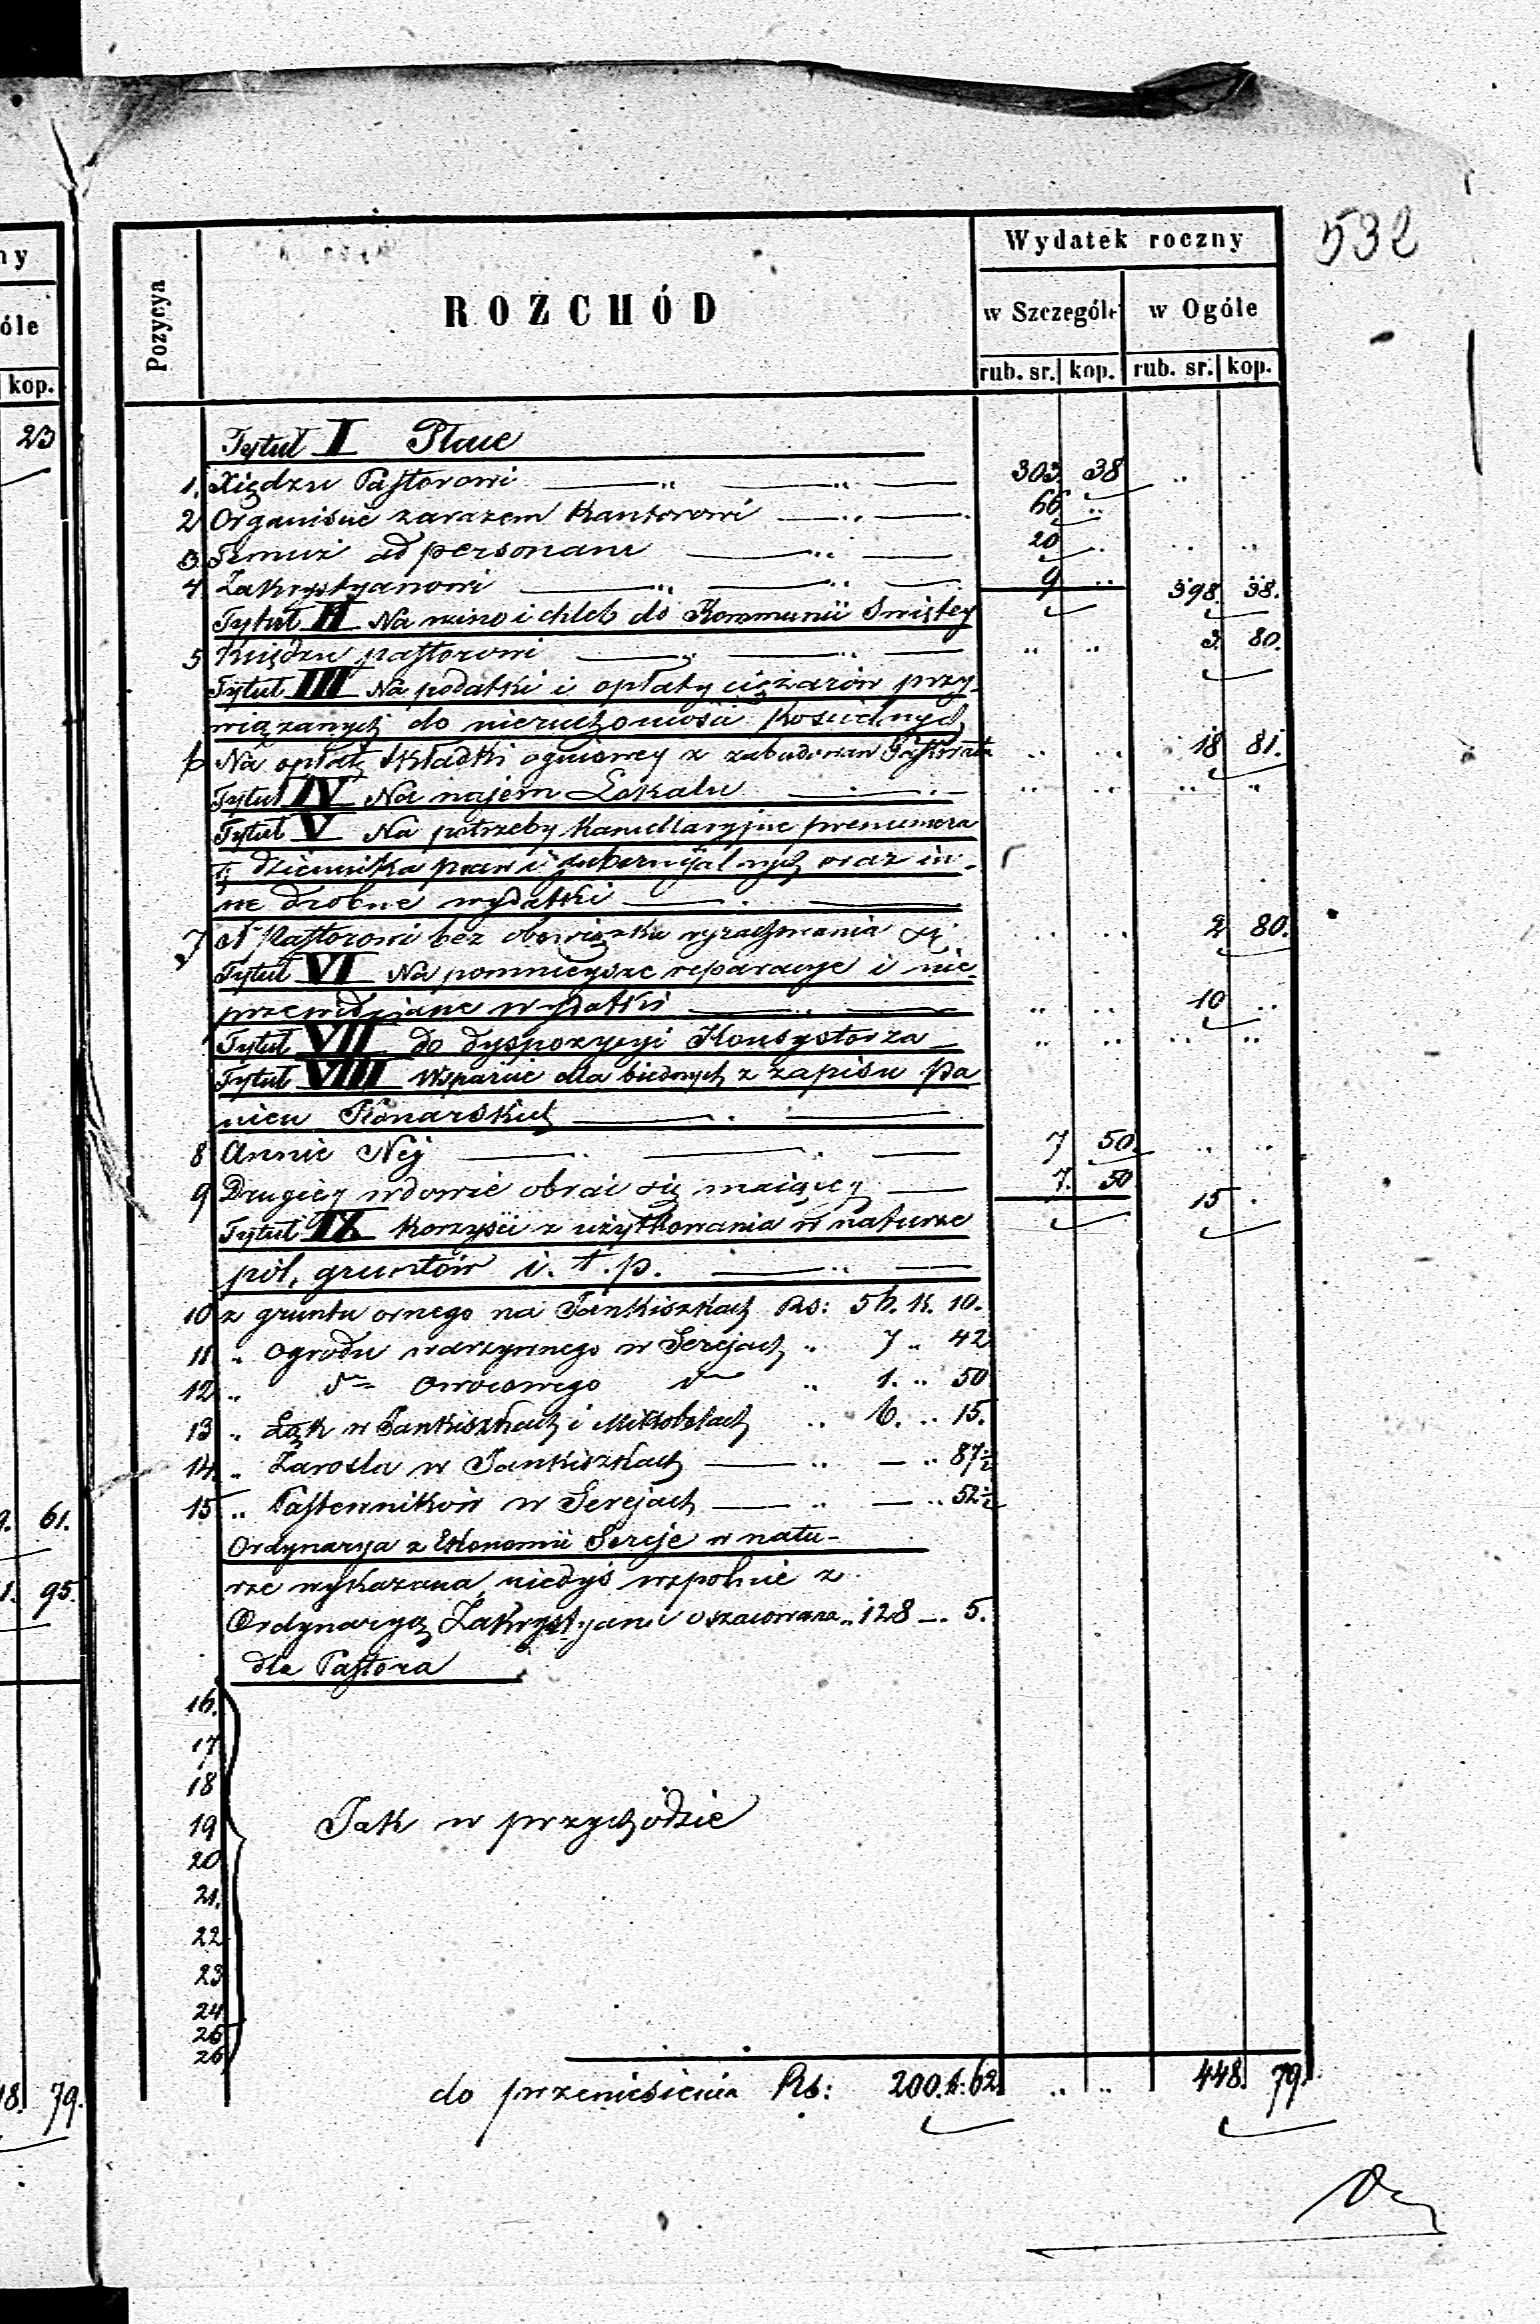 532
ny
óle
kop.
23
61.
95.
18. 79.
Pozycya
ROZCHÓD
Wydatek roczny
w Szczególe w Ogóle
rub. sr. kop. rub. sr. kop.
Tytuł I Płace
1. Xiędzu Pastorowi 303 38
2 Organiście zarazem Kantorowi 66 ..
3. Temuż ad personam 20 ..
4. Zakrystyanowi 9 .. 398. 38.
Tytuł II Na wino i chleb do Kommunii Swiętey
5 Księdzu pastorowi .. .. 3. 80.
Tytuł III Na podatki i opłaty ciężarów przy-
wiązanych do nieruchomości Kościelnych
6 Na opłatę składki ogniowey z zabudowań Pastorata .. .. 18 81.
Tytuł IV Na najem Lokalu .. .. .. ..
Tytuł V Na potrzeby Kancellaryjne prenumera
tę dziennika praw i gubernjalnych oraz in-
ne drobne wydatki
7 Pastorowi bez obowiązku wyrachowania się .. .. 2 80.
Tytuł VI Na pomnieysze reparacye i nie-
przewidziane wydatki .. .. 10 ..
Tytuł VII do dyspozycyi Konsystorza .. .. .. ..
Tytuł VIII Wsparcie dla biednych z zapisu pa
nien Konarskich
8 Annie Nej 7 50. .. ..
9 Drugiey wdowie obrać się maiącey 7. 50 15 .
Tytuł IX Korzyści z użytkowania w naturze
pól, gruntów i. t. p.
10 z gruntu ornego na Jankiszkach Rs: 56. K. 10.
11 .. Ogrodu warzywnego w Serejach .. 7 .. 42
12 .. dto Owocowego dto .. 1. .. 50
13 .. Łąk w Jankiszkach i Mikłobelach .. 6. .. 15.
14 .. Zarośla w Jankiszkach .. — .. 87½
15 .. Pastewników w Serejach .. — .. 52½
Ordynarya z Ekonomii Sereje w natu-
rze wykazana, niedyś wspolnie z
Ordynaryą Zakrystyana oszacowana .. 128 — 5.
dla Pastora
16.
17
18
19 Jak w przychodzie
20
21.
22
23
24
25
26
do przeniesienia Rs: 200. k: 62 .. .. 448. 79.